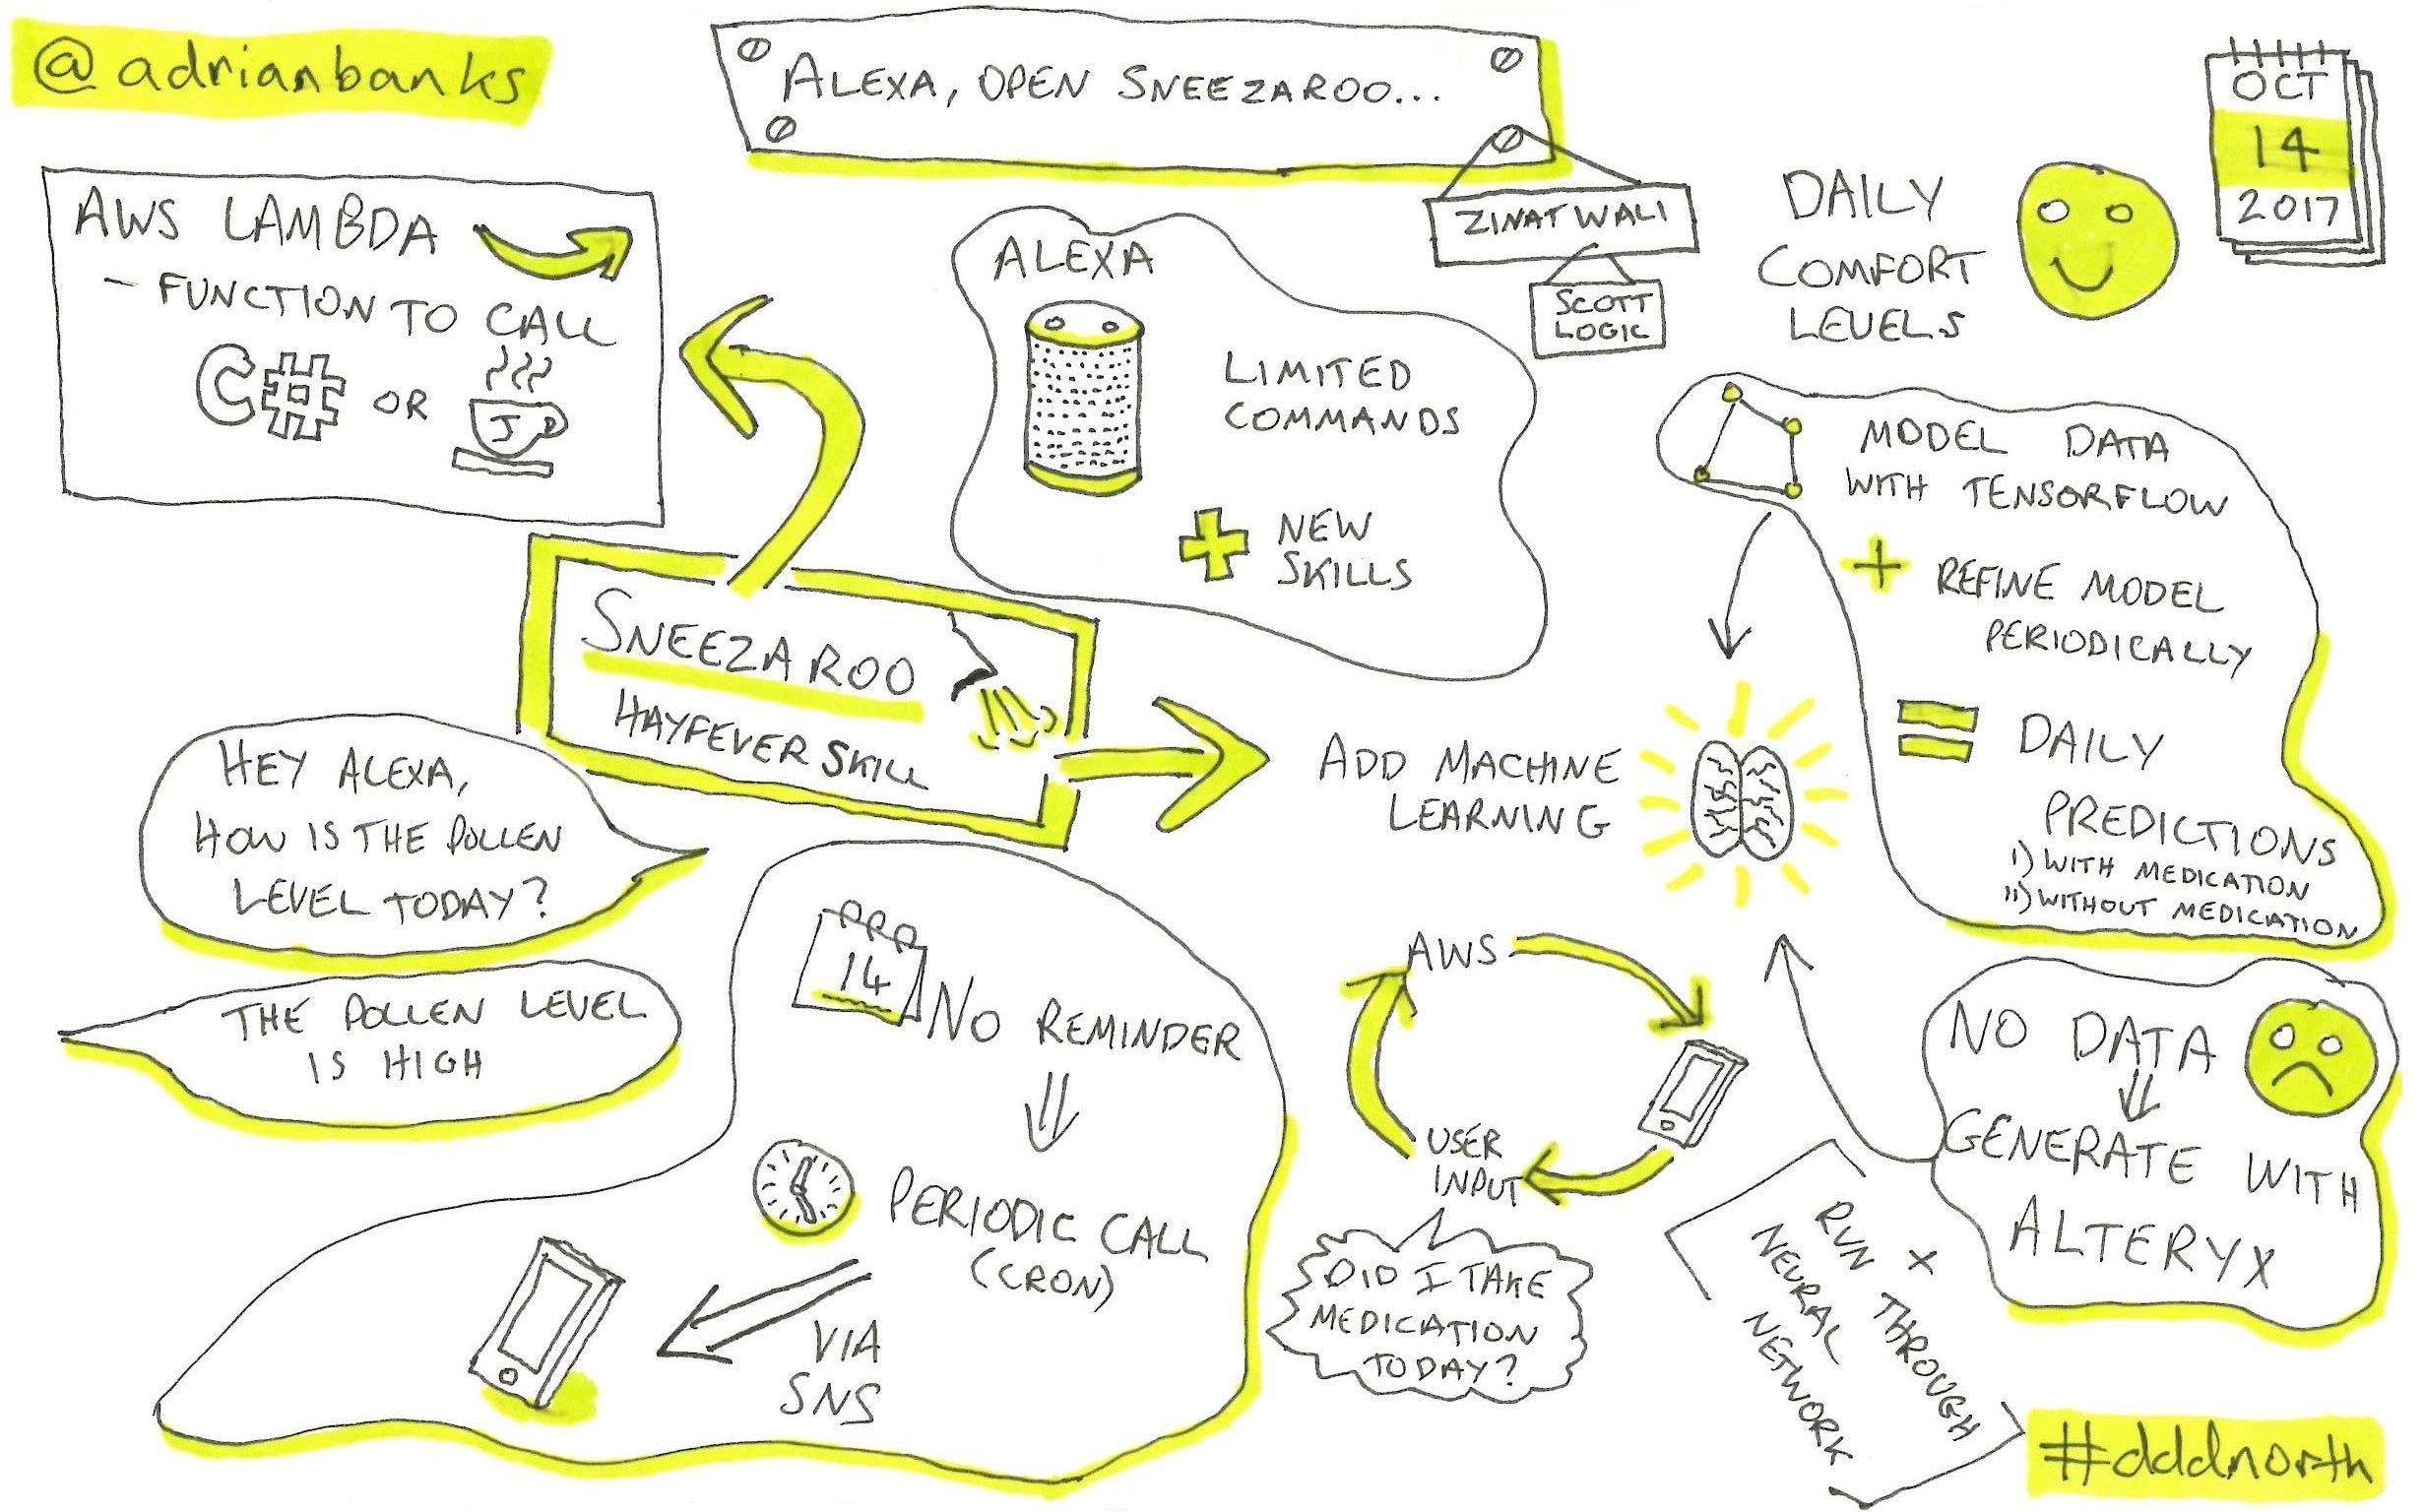 @adrianbanks
ALEXA, OPEN SNEEZAROO...
ZINAT WALI
SCOTT
LOGIC
OCT
14
2017
AWS LAMBDA
- FUNCTION TO CALL
C# OR J
ALEXA
LIMITED
COMMANDS
+ NEW
SKILLS
DAILY
COMFORT
LEVELS
MODEL DATA
WITH TENSORFLOW
+ REFINE MODEL
PERIODICALLY
= DAILY
PREDICTIONS
I) WITH MEDICATION
II) WITHOUT MEDICATION
SNEEZAROO
HAYFEVER SKILL
ADD MACHINE
LEARNING
HEY ALEXA,
HOW IS THE POLLEN
LEVEL TODAY?
THE POLLEN LEVEL
IS HIGH
14
NO REMINDER
PERIODIC CALL
(CRON)
VIA
SNS
AWS
USER
INPUT
DID I TAKE
MEDICATION
TODAY?
NO DATA
GENERATE WITH
ALTERYX
RUN X THROUGH
NEURAL
NETWORK
#dddnorth